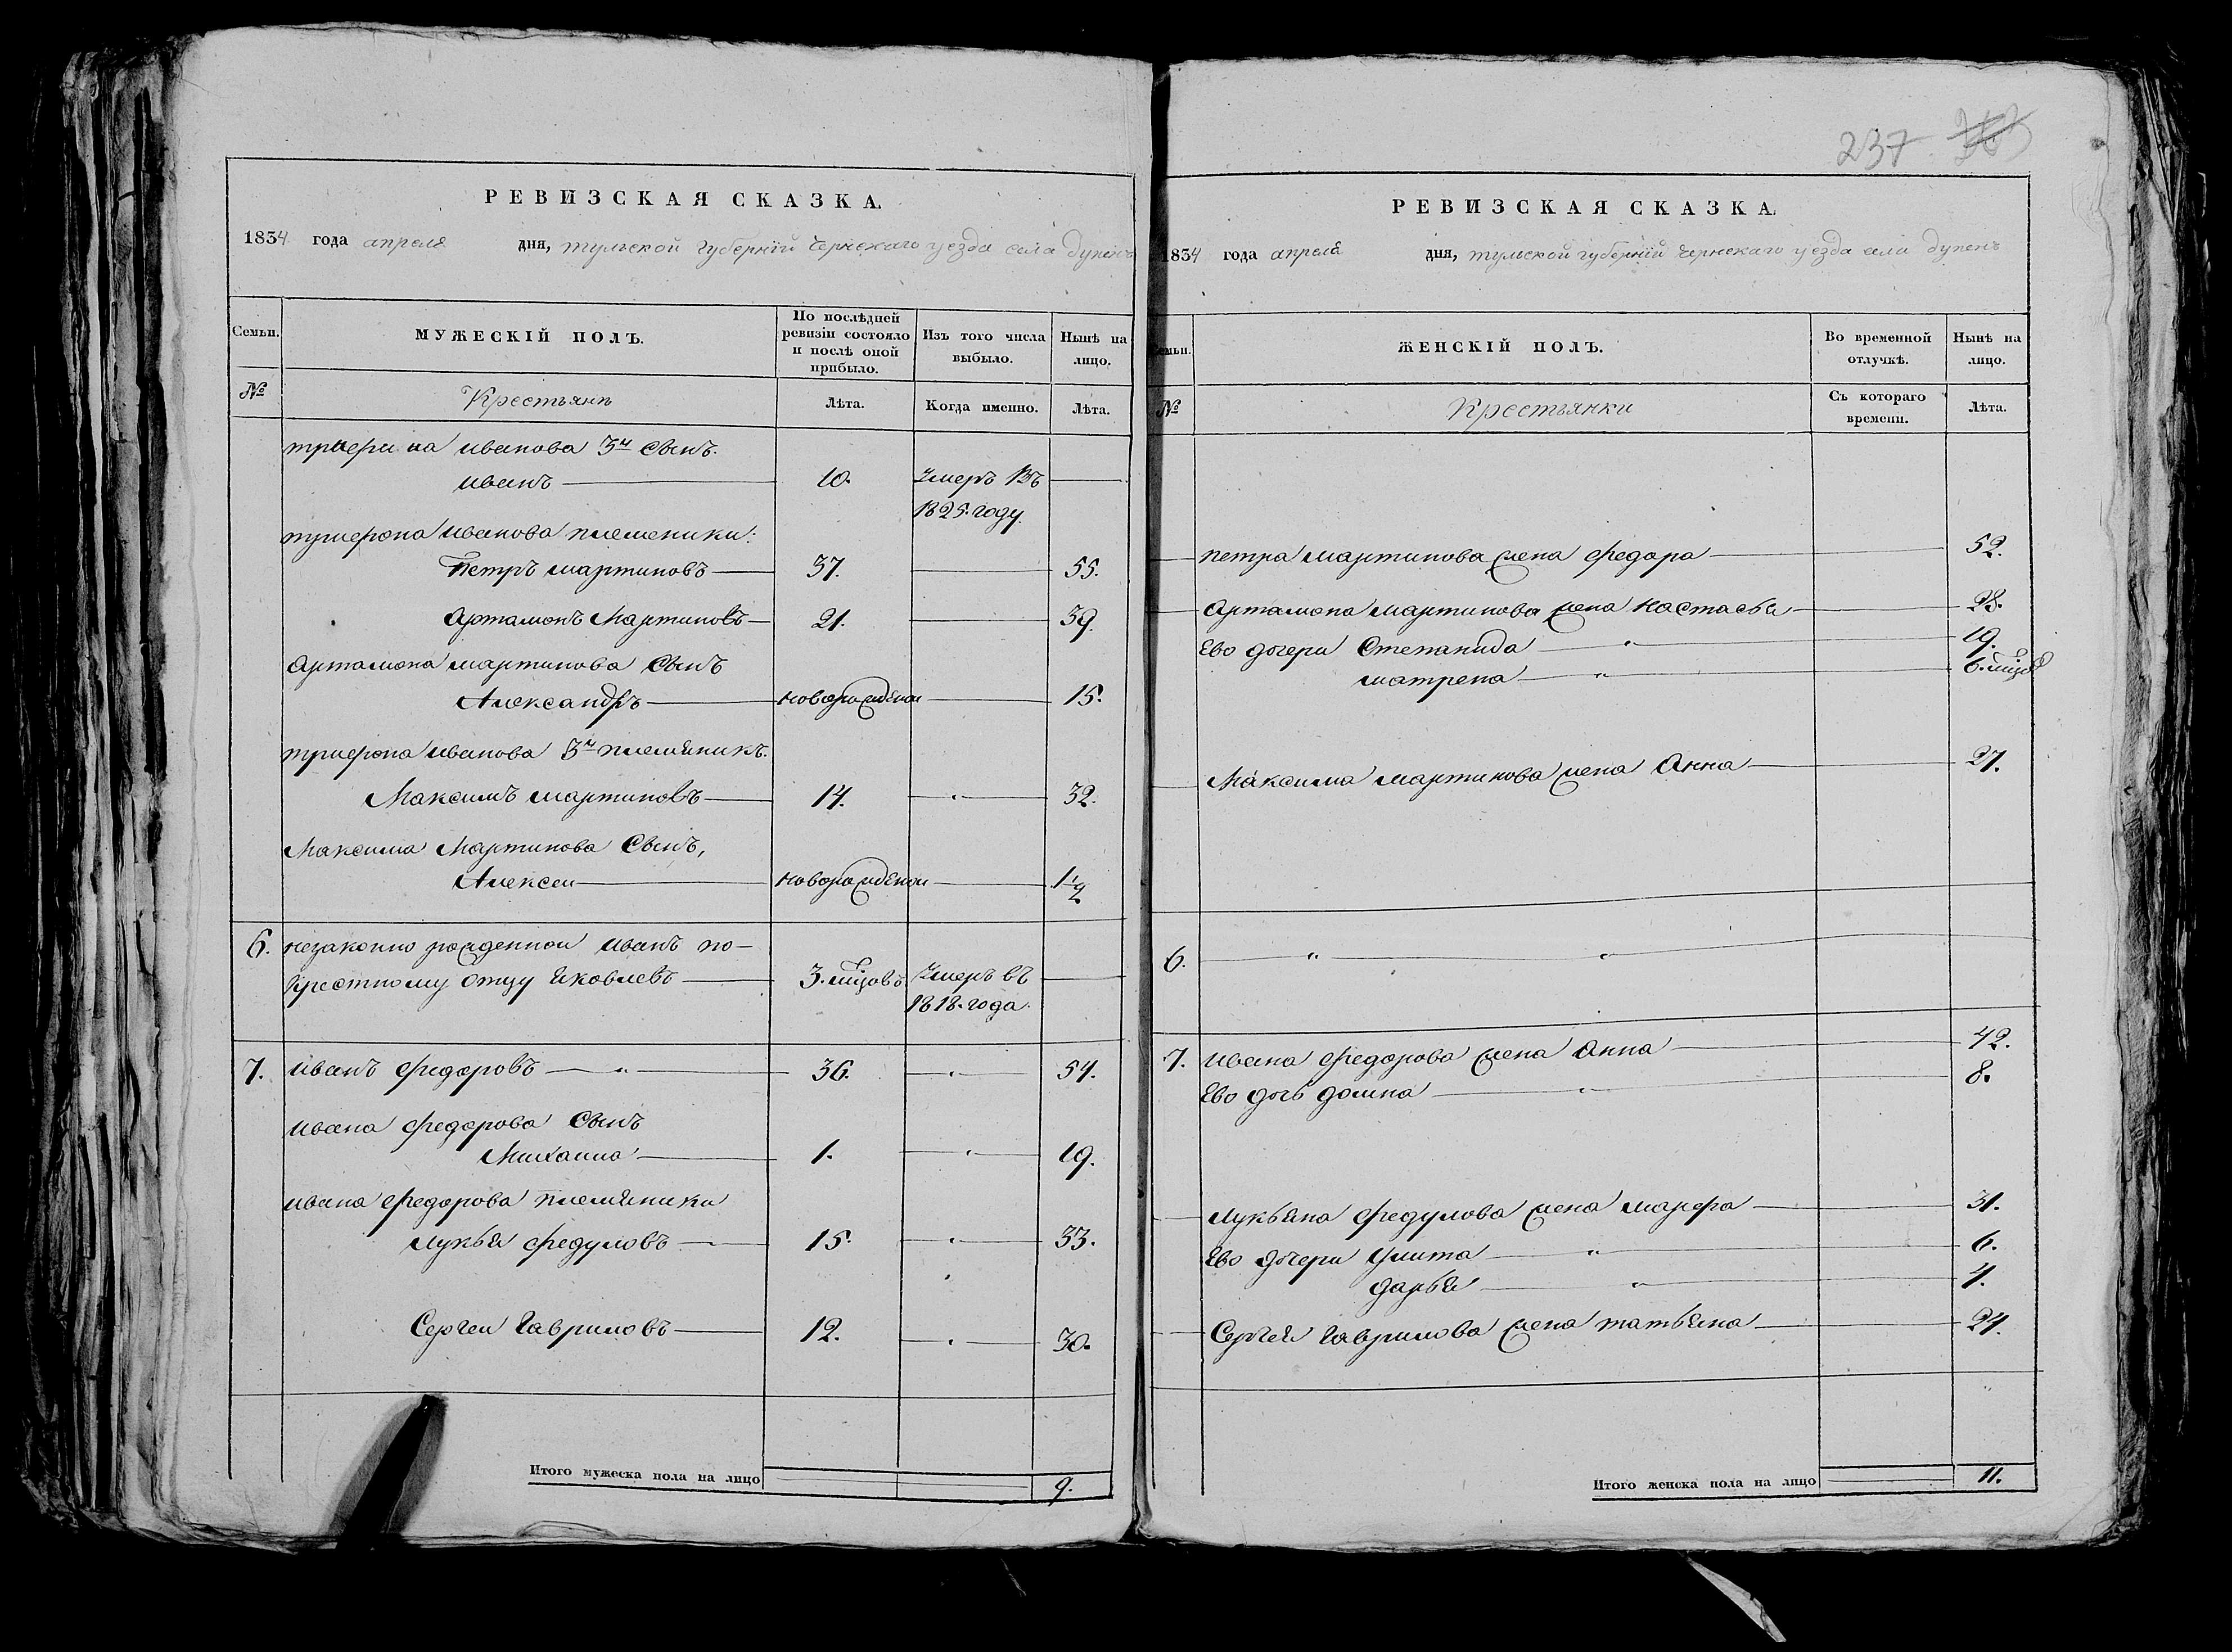 237
РЕВИЗСКАЯ СКАЗКА.
1834 года апреля дня, тульской губернїй Чернскаго уезда села дупенъ
Семьи.
МУЖЕСКІЙ ПОЛЪ.
По послѣдней ревизіи состояло и послѣ оной прибыло.
Изъ того числа выбыло.
Нынѣ на лицо.
№
Крестьяне
Лѣта.
Когда именно.
Лѣта.
иванова 3й сынъ.
иванъ 10. Умеръ въ
1825. году.
иванова племеники:
Петръ мартиновъ 37. 55.
Артамонъ Мартиновъ 21. 39.
Артамона мартинова сынъ
Александръ новорожденои 15.
иванова 3й племяникъ.
Максимъ мартиновъ 14. " 32.
Максима Мартинова сынъ,
Алексеи новорожденои 1 1/2
6. незаконно рожденнои иванъ по-
крестному отцу яковлевъ 3. мцовъ Умеръ въ
1818. года.
7. иванъ федоровъ " 36. " 54.
ивана федорова сынъ
Михаила 1. " 19.
ивана федорова племяники
лукья федуловъ 15. " 33.
Сергеи гавриловъ 12. " 30.
Итого мужеска пола на лицо 9.
РЕВИЗСКАЯ СКАЗКА.
1834 года апреля дня, тульской губернїй Чернскаго уезда села дупенъ
Семьи.
ЖЕНСКІЙ ПОЛЪ.
Во временной отлучкѣ.
Нынѣ на лицо.
№
Крестьянки
Съ котораго времени.
Лѣта.
петра мартинова жена федора 52.
Артамона мартинова жена настасья 28.
ево дочери Степанида " 19.
матрена " 6. мцов
Максима мартинова жена Анна 27.
6. " "
7. ивана федорова жена Анна 42.
ево дочь домна " 8.
лукьяна федулова жена марфа 31.
ево дочери улита " 6.
дарья " 4.
Сергея гаврилова жена татьяна 24.
Итого женска пола на лицо 11.